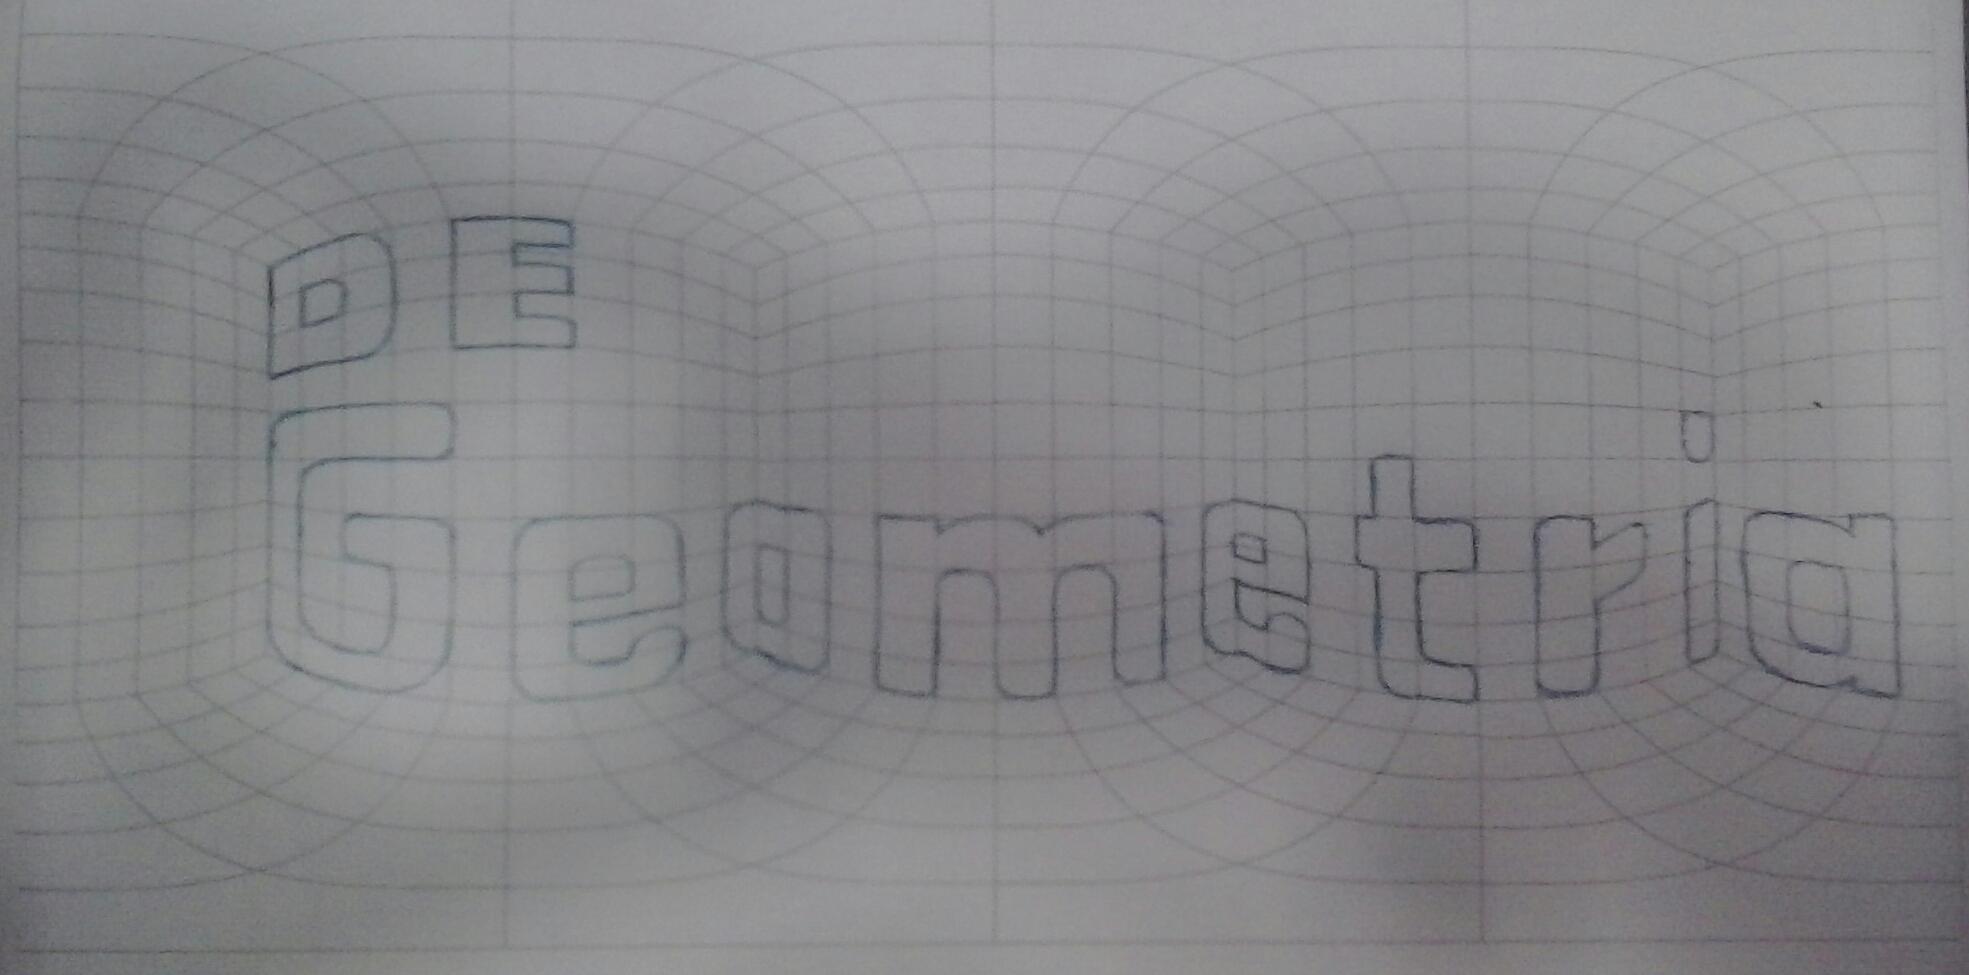 DE
Geometria